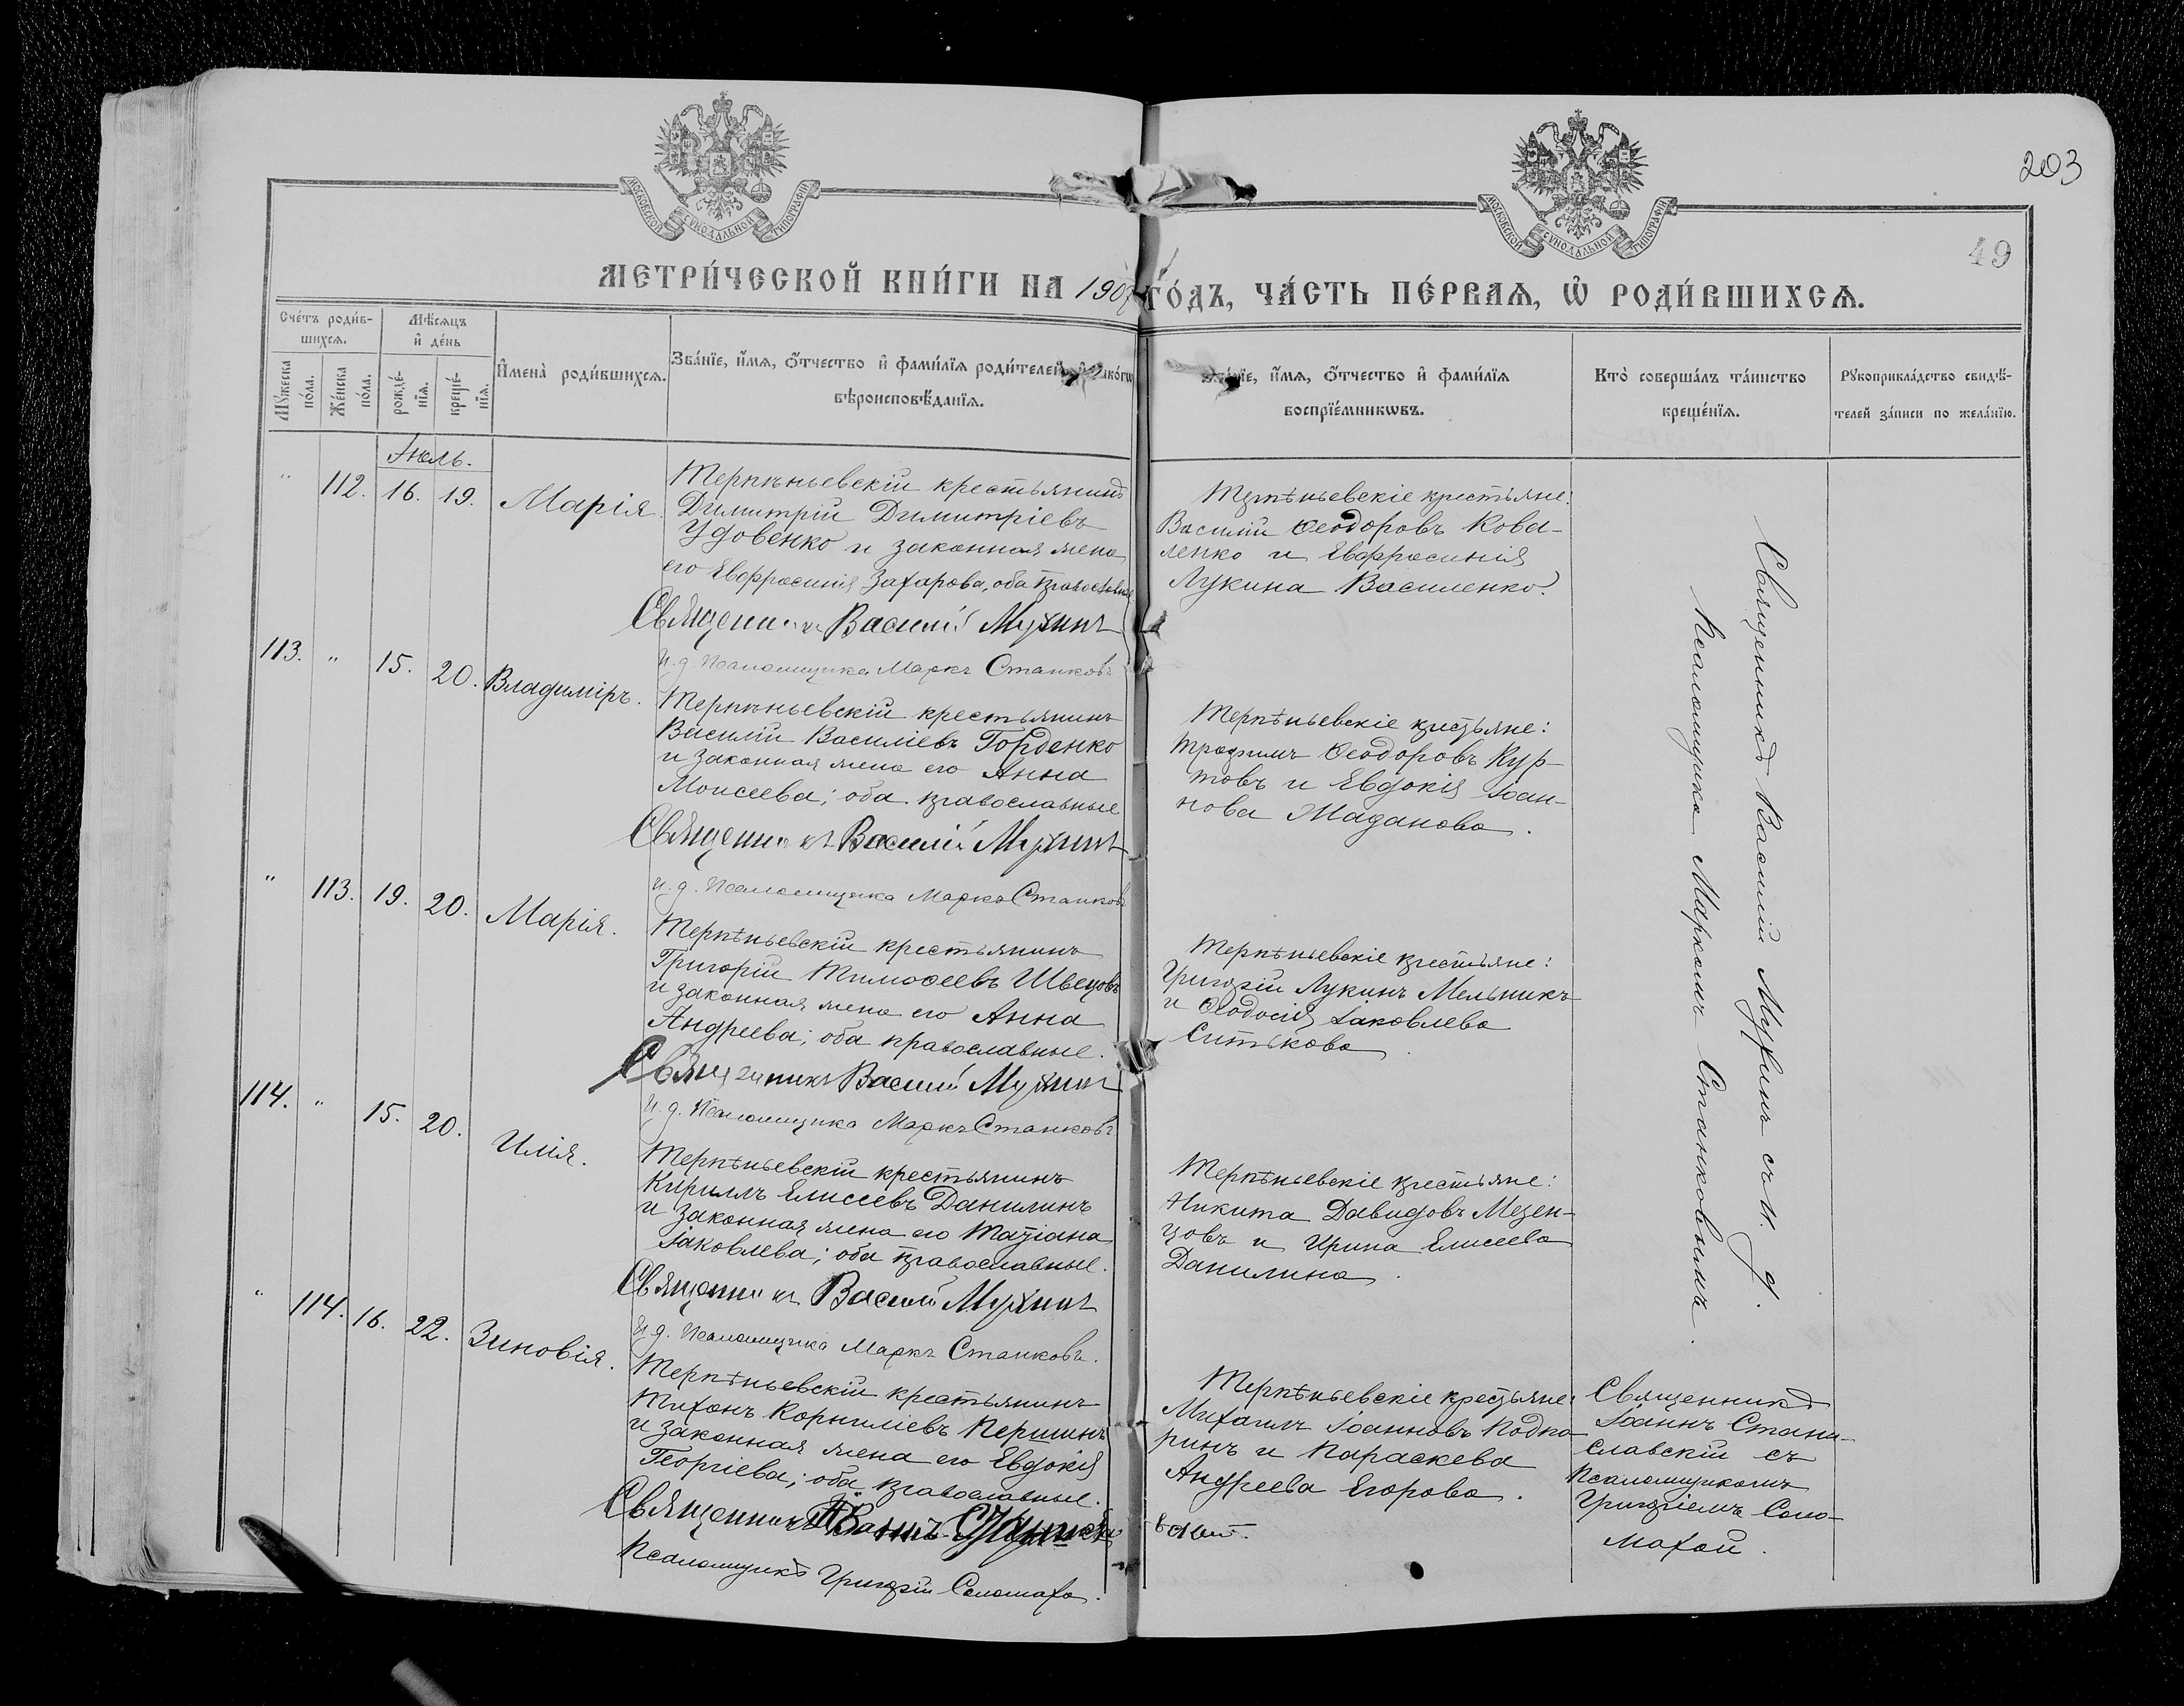 203
49
МОСКОВСКОЙ СѴНОДАЛЬНОЙ ТИПОГРАФІИ
МОСКОВСКОЙ СѴНОДАЛЬНОЙ ТИПОГРАФІИ
МЕТРИ́ЧЕСКОЙ КНИ́ГИ НА 190 ГО́ДЪ, ЧА́СТЬ ПЕ́РВАѦ, Ѡ҆ РОДИ́ВШИХСѦ.
Сче́тъ роди́в-
шихсѧ.
Мѣ́сѧцъ
и҆ де́нь
Мꙋ́жеска
по́ла.
Же́нска
по́ла.
рожде́-
нїѧ.
креще́-
нїѧ.
И҆мена̀ роди́вшихсѧ.
Зва́нїе, и҆́мѧ, ѻ҆́тчество и҆ фами́лїѧ роди́телей, и҆ како́гѡ
вѣроисповѣ́данїѧ.
Зва́нїе, и҆́мѧ, ѻ҆́тчество и҆ фами́лїѧ
воспрїе́мникѡвъ.
Кто̀ соверша́лъ та́инство
креще́нїѧ.
Рꙋкоприкла́дство свидѣ́-
телей за́писи по жела́нїю.
Іюль.
" 112. 16. 19. Марія.
Терпѣньевскій крестьянинъ
Димитрій Димитріевъ
Удовенко и законная жена
его Евфросинія Захарова, оба православные
Священникъ Василій Мухинъ
И. д. Псаломщика Маркъ Станковъ
Терпѣньевскіе крестьяне:
Василій Ѳеодоровъ Кова-
ленко и Евфросинія
Лукина Василенко.
113. " 15. 20. Владиміръ.
Терпѣньевскій крестьянинъ
Василій Василіевъ Горденко
и законная жена его Анна
Моисеева; оба православные
Священникъ Василій Мухинъ
И. д. Псаломщика Маркъ Станковъ
Терпѣньевскіе крестьяне:
Трофимъ Ѳеодоровъ Кур-
товъ и Евдокія Іоан-
нова Маданова.
" 113. 19. 20. Марія.
Терпѣньевскій крестьянинъ
Григорій Тимоѳеевъ Швецовъ
и законная жена его Анна
Андреева; оба православные.
Священникъ Василій Мухинъ
И. д. Псаломщика Маркъ Станковъ
Терпѣньевскіе крестьяне:
Григорій Лукинъ Мельникъ
и Ѳеодосія Іаковлева
Ситькова.
114. " 15. 20. Илія.
Терпѣньевскій крестьянинъ
Кириллъ Елисеевъ Данилинъ
и законная жена его Татіана
Іаковлева; оба православные.
Священникъ Василій Мухинъ
И. д. Псаломщика Маркъ Станковъ.
Терпѣньевскіе крестьяне:
Никита Давидовъ Мезен-
цовъ и Ирина Елисеева
Данилина.
Священникъ Василій Мухинъ съ и. д.
Псаломщика Маркомъ Станковымъ.
" 114. 16. 22. Зиновія.
Терпѣньевскій крестьянинъ
Тихонъ Корниліевъ Першинъ
и законная жена его Евдокія
Георгіева; оба православные.
Священникъ Іоаннъ
Псаломщикъ Григорій Соломаха.
Терпѣньевскіе крестьяне:
Михаилъ Іоанновъ Подпо-
ринъ и Параскева
Андреева Егорова.
Священникъ
Іоаннъ Стани-
славскій съ
Псаломщикомъ
Григоріемъ Соло-
махой.